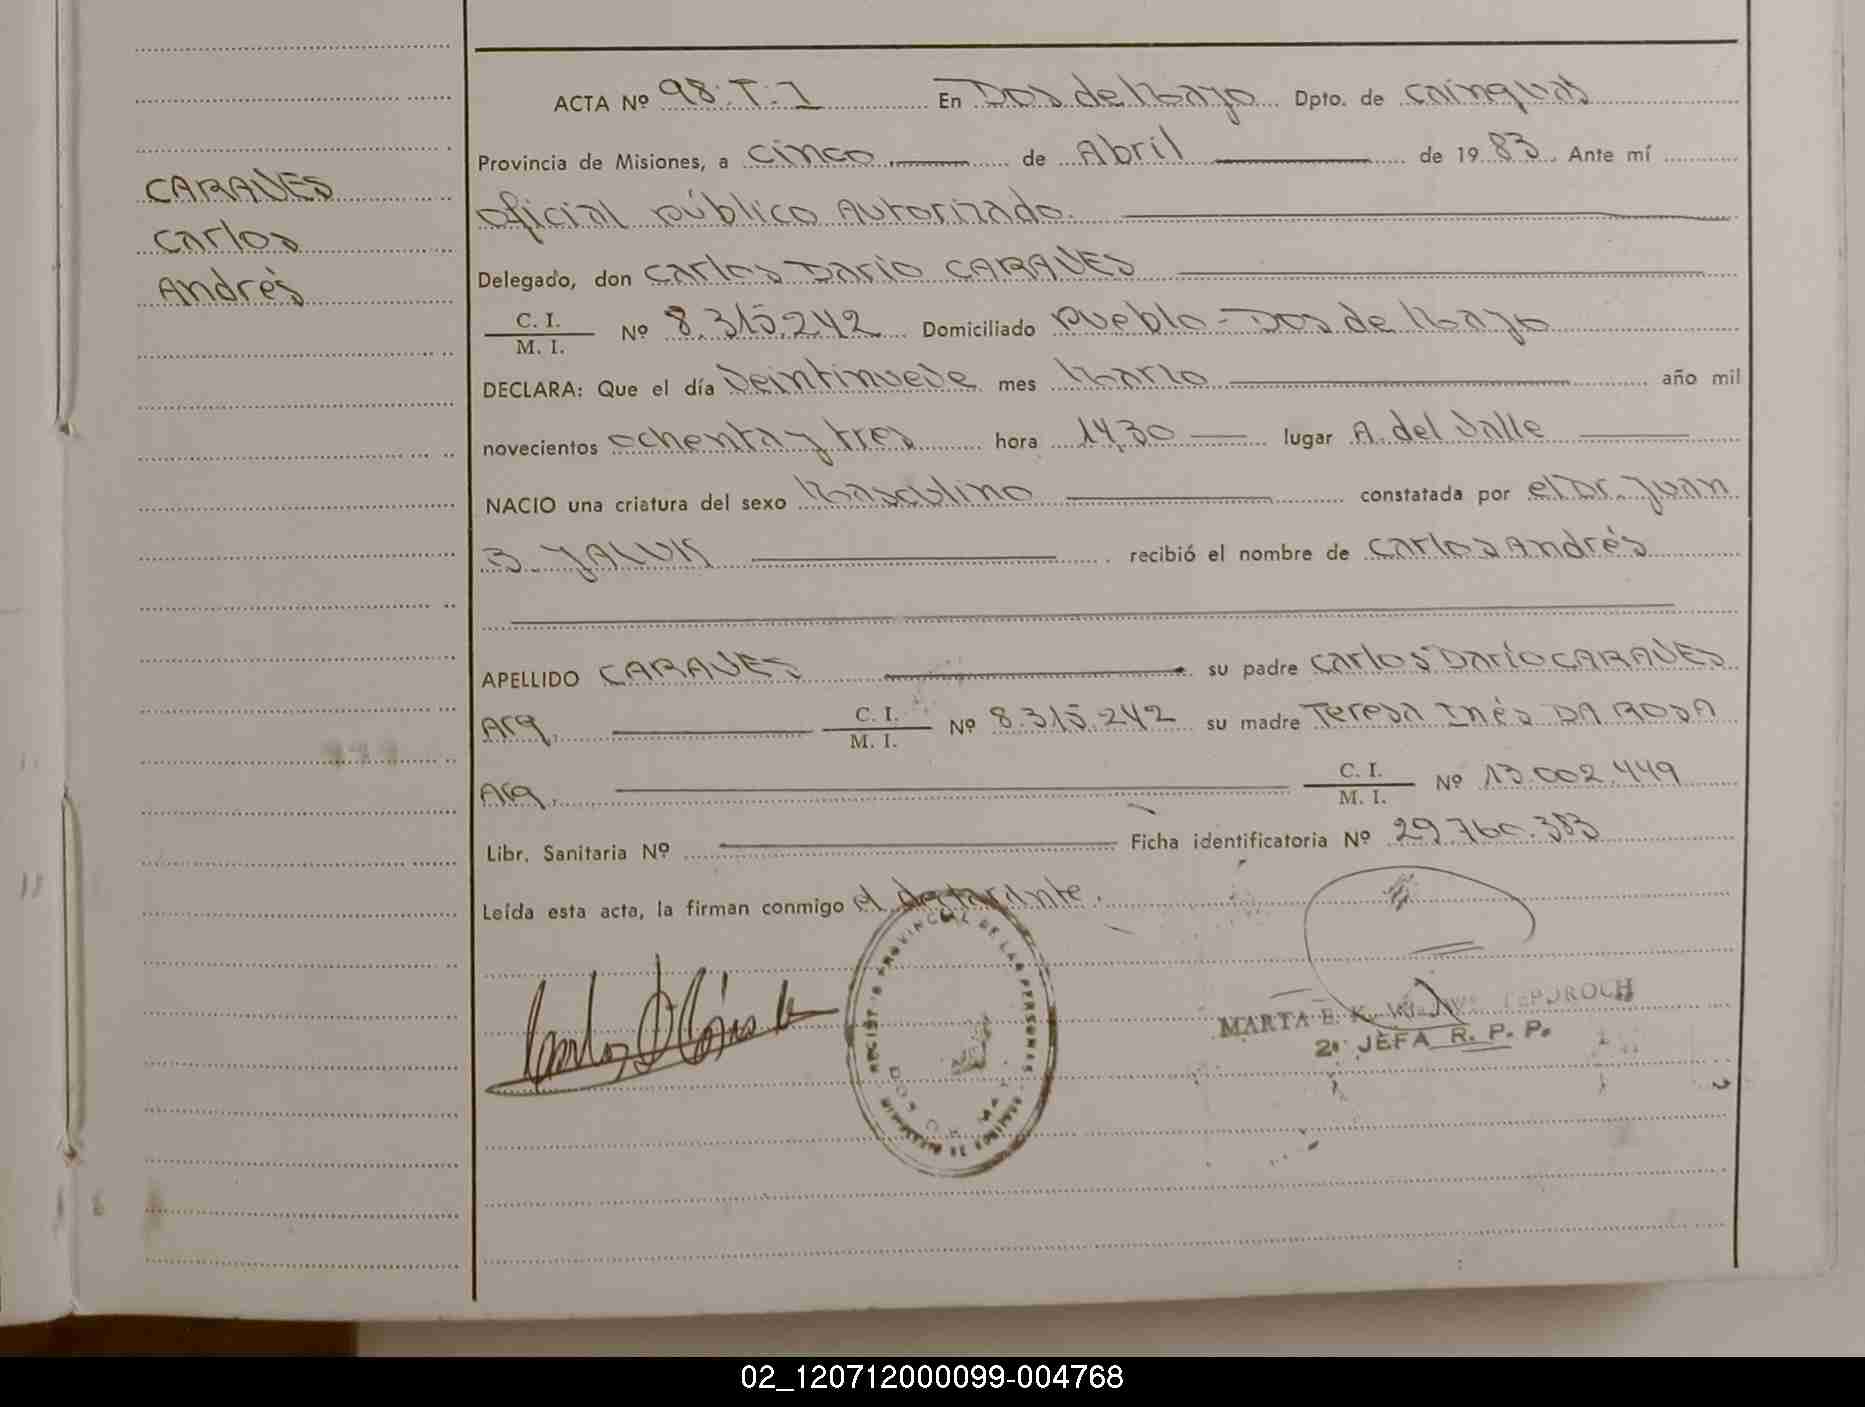 ACTA Nº 98.T.I En Dos de Mayo Dpto. de Cainguas
Provincia de Misiones, a cinco de Abril de 1983. Ante mí
CARAVES
oficial público Autorizado.
Carlos
Delegado, don Carlos Dario CARAVES
Andrés
C. I.
M. I. Nº 8.315.242 Domiciliado Pueblo - Dos de Mayo
DECLARA: Que el día Veintinueve mes Marzo año mil
novecientos ochenta y tres hora 14,30 lugar A. del Valle
NACIO una criatura del sexo Masculino constatada por el Dr. Juan
B. recibió el nombre de Carlos Andrés
APELLIDO CARAVES su padre Carlos Darío CARAVES
Arg. C. I.
M. I. Nº 8.315.242 su madre Teresa Inés DA ROSA
Arg. C. I.
M. I. Nº 13.002.449
Libr. Sanitaria Nº Ficha identificatoria Nº 29.760.383
Leída esta acta, la firman conmigo el declarante.
REGISTRO PROVINCIAL DE LAS PERSONAS
DOS DE MAYO
MISIONES
MARTA E. K.
2º JEFA R. P. P.
02_120712000099-004768